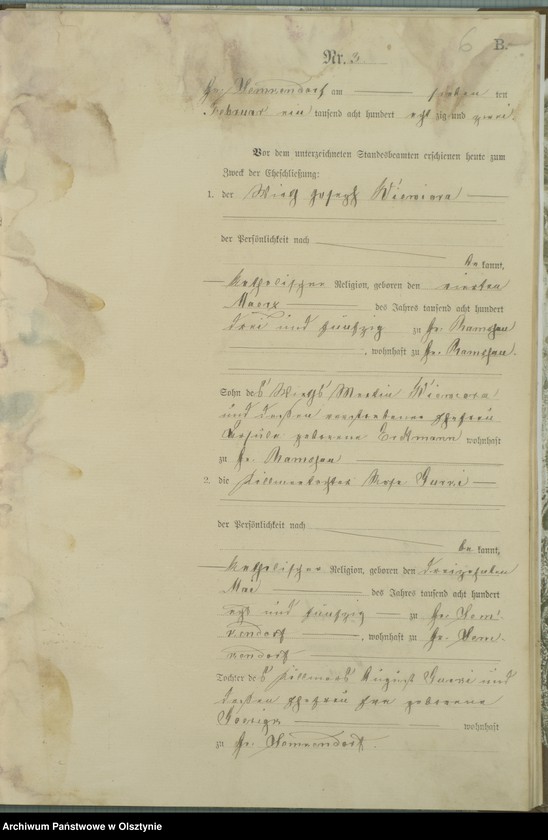 6 B.
Nr. 3.
Gr. Lemkendorf am sieben ten
Februar ein tausend acht hundert acht zig und zwei.
Vor dem unterzeichneten Standesbeamten erschienen heute zum
Zweck der Eheschließung:
1. der Wirth Joseph Wiewiora
der Persönlichkeit nach
be kannt,
katholischer Religion, geboren den vierten
Maerz des Jahres tausend acht hundert
drei und fünfzig zu Gr. Ramsau
, wohnhaft zu Gr. Ramsau.
Sohn des Wirths Martin Wiewiora
und dessen verstorbener Ehefrau
Ursula geborene Erdmann wohnhaft
zu Gr. Ramsau
2. die Köllmertochter Rosa
der Persönlichkeit nach
be kannt,
katholischer Religion, geboren den dreizehnten
Mai des Jahres tausend acht hundert
acht und fünfzig zu Gr. Lem-
kendorf , wohnhaft zu Gr. Lem-
kendorf
Tochter des Köllmers August und
dessen Ehefrau Eva geborene
wohnhaft
zu Gr. Lemkendorf.
Archiwum Państwowe w Olsztynie